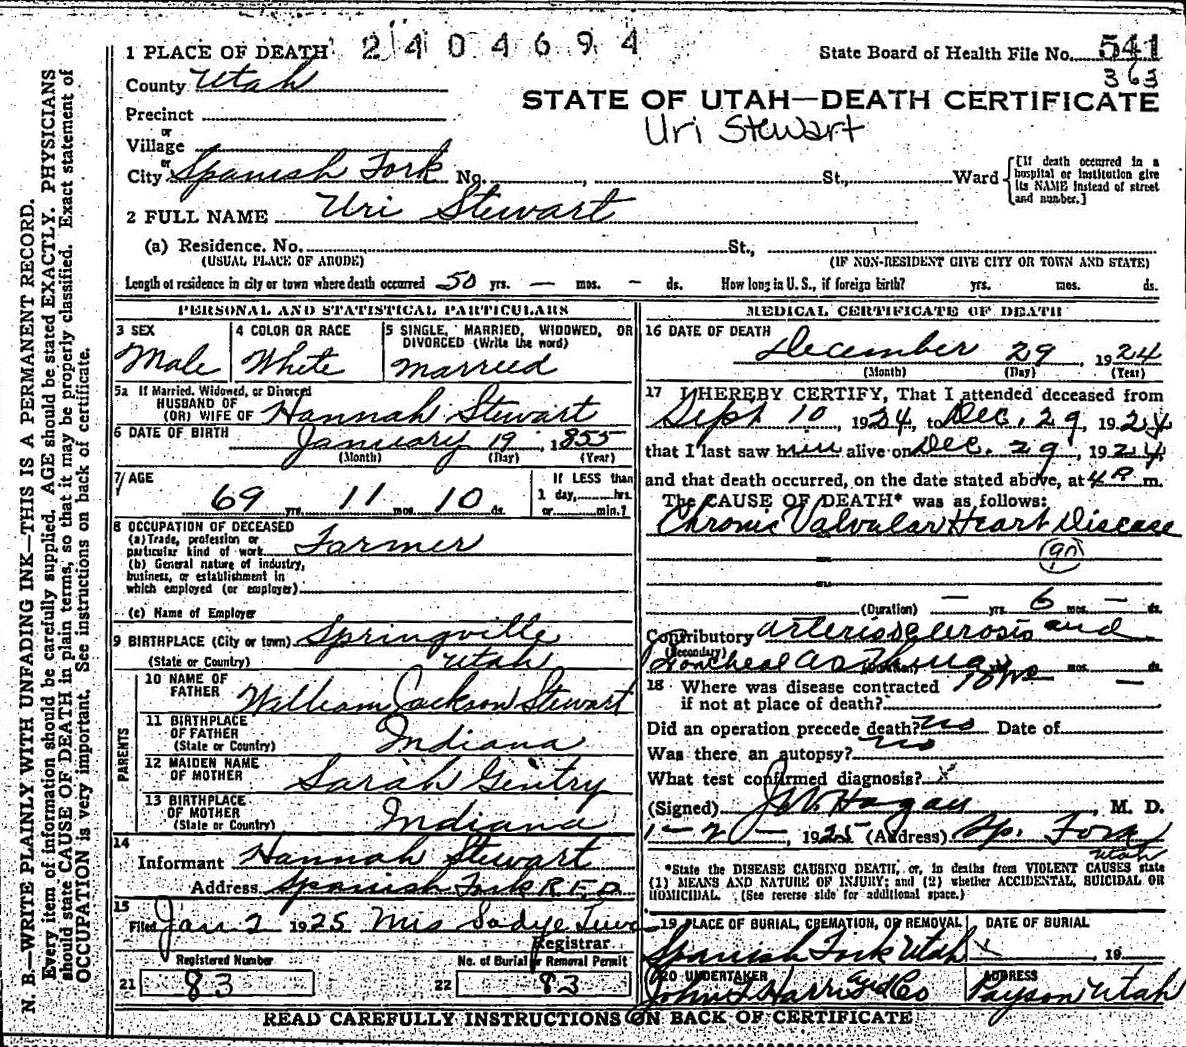 1 PLACE OF DEATH 2404694 State Board of Health File No. 541
County Utah 363
STATE OF UTAH—DEATH CERTIFICATE
Precinct
Uri Stewart
or
Village
or
City Spanish Fork No. , St., Ward [If death occurred in a hospital or institution give its NAME instead of street and number.]
2 FULL NAME Uri Stewart
(a) Residence. No. St.,
(USUAL PLACE OF ABODE) (IF NON-RESIDENT GIVE CITY OR TOWN AND STATE)
Length of residence in city or town where death occurred 50 yrs. — mos. — ds. How long in U. S., if foreign birth? yrs. mos. ds.
PERSONAL AND STATISTICAL PARTICULARS
3 SEX
Male
4 COLOR OR RACE
White
5 SINGLE, MARRIED, WIDOWED, OR
DIVORCED (Write the word)
Married
5a If Married, Widowed, or Divorced
HUSBAND OF
(OR) WIFE OF Hannah Stewart
6 DATE OF BIRTH January 19, 1855
(Month) (Day) (Year)
7 AGE
69 yrs. 11 mos. 10 ds.
If LESS than
1 day, hrs.
or min.?
8 OCCUPATION OF DECEASED
(a) Trade, profession or
particular kind of work Farmer
(b) General nature of industry,
business, or establishment in
which employed (or employer)
(c) Name of Employer
9 BIRTHPLACE (City or town) Springville
(State or Country) Utah
PARENTS
10 NAME OF
FATHER William Jackson Stewart
11 BIRTHPLACE
OF FATHER
(State or Country) Indiana
12 MAIDEN NAME
OF MOTHER Sarah Gentry
13 BIRTHPLACE
OF MOTHER
(State or Country) Indiana
14
Informant Hannah Stewart
Address Spanish Fork R.F.D.
15
Filed Jan 2 1925 Mrs Sadye
Registrar
Registered Number No. of Burial or Removal Permit
21 83 22 83
MEDICAL CERTIFICATE OF DEATH
16 DATE OF DEATH
December 29, 1924
(Month) (Day) (Year)
17 I HEREBY CERTIFY, That I attended deceased from
Sept 10, 1924, to Dec. 29, 1924
that I last saw him alive on Dec. 29, 1924,
and that death occurred, on the date stated above, at 4 P m.
The CAUSE OF DEATH* was as follows:
Chronic Valvular Heart Disease
90
(Duration) — yrs. 6 mos. — ds.
Contributory arteriosclerosis and
(Secondary)
Broncheal asthma mos. ds.
18 Where was disease contracted
if not at place of death?
Did an operation precede death? no Date of
Was there an autopsy? no
What test confirmed diagnosis? x
(Signed) Hagan, M. D.
1-2-, 1925 (Address) Sp. Fork
Utah
*State the DISEASE CAUSING DEATH, or, in deaths from VIOLENT CAUSES state
(1) MEANS AND NATURE OF INJURY; and (2) whether ACCIDENTAL, SUICIDAL OR
HOMICIDAL. (See reverse side for additional space.)
19 PLACE OF BURIAL, CREMATION, OR REMOVAL DATE OF BURIAL
Spanish Fork Utah , 19
20 UNDERTAKER ADDRESS
Harris and Co Payson Utah
READ CAREFULLY INSTRUCTIONS ON BACK OF CERTIFICATE
N. B.—WRITE PLAINLY WITH UNFADING INK—THIS IS A PERMANENT RECORD.
Every item of information should be carefully supplied. AGE should be stated EXACTLY. PHYSICIANS
should state CAUSE OF DEATH in plain terms, so that it may be properly classified. Exact statement of
OCCUPATION is very important. See instructions on back of certificate.